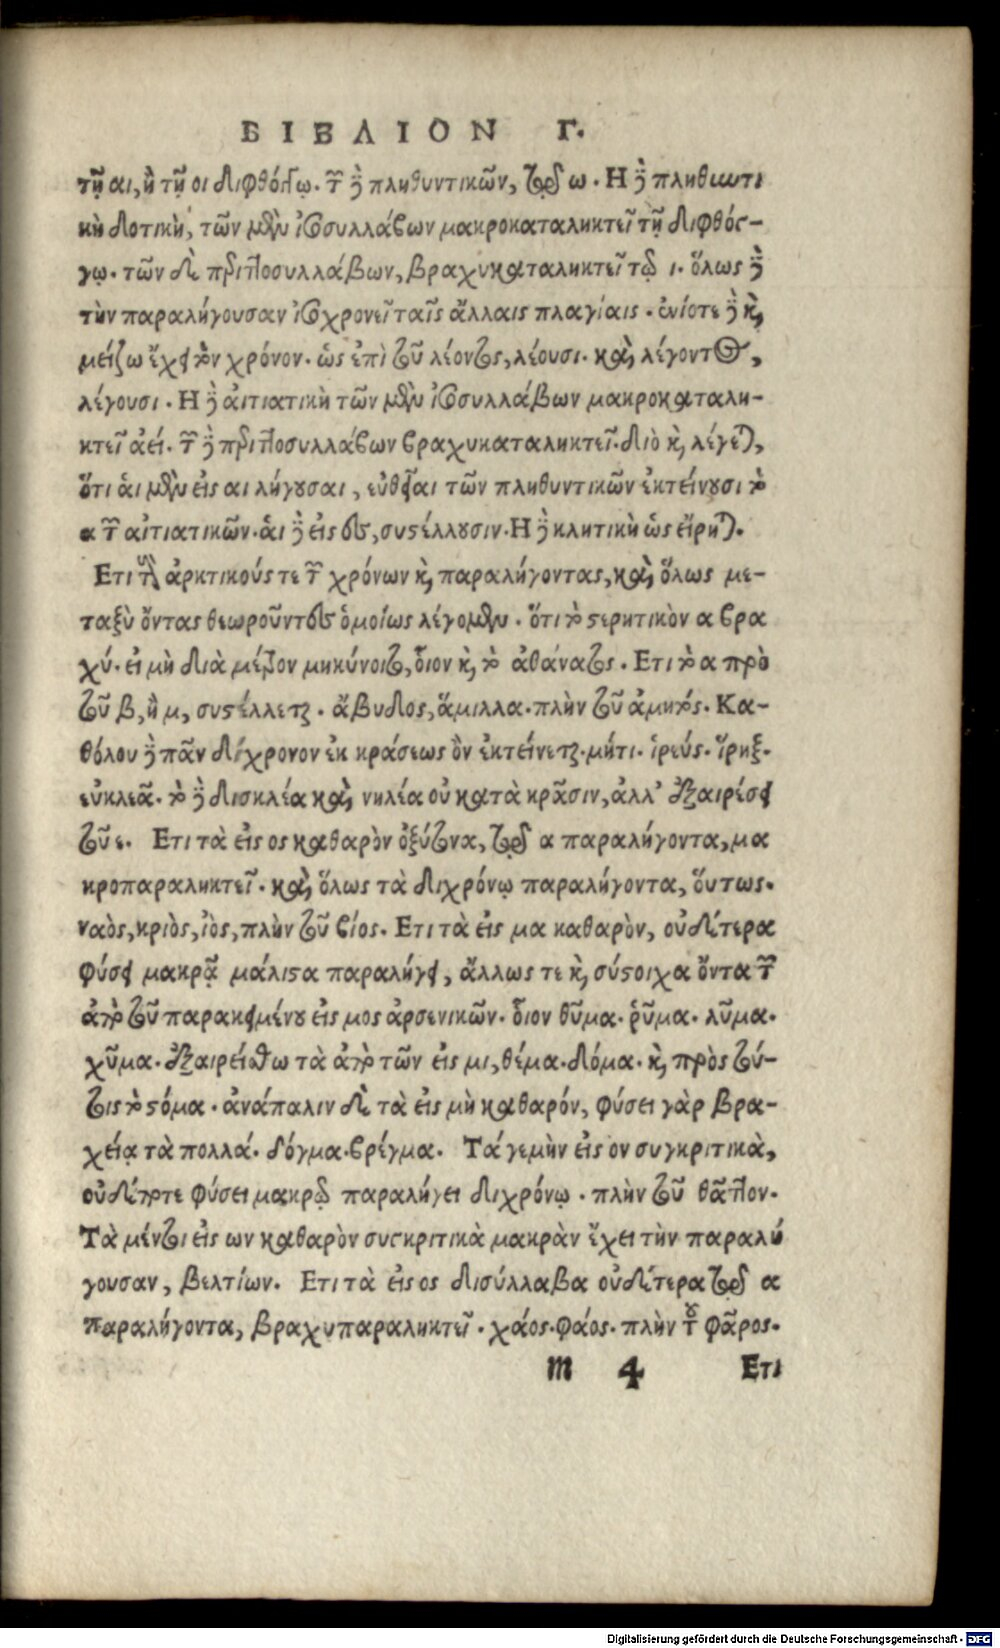 ΒΙΒΛΙΟΝ Γ.
τῇ αι, ἢ τῇ οι διφθόγγῳ. τῶν δὲ πληθυντικῶν, τῷ ω. Η δὲ πληθωντι
κὴ δοτικὴ, τῶν μὲν ἰσοσυλλάβων μακροκαταληκτεῖ τῇ διφθόγ-
γῳ. τῶν δὲ περιττοσυλλάβων, βραχυκαταληκτεῖ τῷ ι. ὅλως δὲ
τὴν παραλήγουσαν ἰσοχρονεῖ ταῖς ἄλλαις πλαγίαις. ἐνίοτε δὲ καὶ
μείζω ἔχει τὸν χρόνον. ὡς ἐπὶ τοῦ λέοντος, λέουσι. καὶ, λέγοντος,
λέγουσι. Η δὲ ἀιτιατικὴ τῶν μὲν ἰσοσυλλάβων μακροκαταλη-
κτεῖ ἀεί. τῶν δὲ περιττοσυλλάβων βραχυκαταληκτεῖ. διὸ καὶ λέγεται,
ὅτι ἁι μὲν εἰς αι λήγουσαι, εὐθεῖαι τῶν πληθυντικῶν ἐκτείνουσι τὸ
α τῶν αἰτιατικῶν. ἁι δὲ εἰς ες, συστέλλουσιν. Η δὲ κλητικὴ ὡς εἴρηται.
Ετι δὲ ἀρκτικούς τε τῶν χρόνων καὶ παραλήγοντας, καὶ, ὅλως με-
ταξὺ ὄντας θεωροῦντες ὁμοίως λέγομεν. ὅτι τὸ στερητικὸν α βρα
χύ. εἰ μὴ διὰ μέτρον μηκύνοιτο, ὅιον καὶ τὸ ἀθάνατος. Ετι τὸ α πρὸ
τοῦ β, ἢ μ, συστέλλεται. ἄβυδος, ἅμιλλα. πλὴν τοῦ ἀμητός. Κα-
θόλου δὲ πᾶν δίχρονον ἐκ κράσεως ὂν ἐκτείνεται. μήτι. ἱρεύς. ἴρηξ.
εὐκλεᾶ. τὸ δὲ δισκλέα καὶ, νηλέα οὐ κατὰ κρᾶσιν, ἀλλ' ἐξαιρέσει
τοῦ ε. Ετι τὰ εἰς ος καθαρὸν ὀξύτονα, τῷ α παραλήγοντα, μα
κροπαραληκτεῖ. καὶ, ὅλως τὰ διχρόνῳ παραλήγοντα, ὅυτως.
ναὸς, κριὸς, ἰὸς, πλὴν τοῦ βίος. Ετι τὰ εἰς μα καθαρὸν, οὐδέτερα
φύσει μακρᾷ μάλιστα παραλήγει, ἄλλως τε καὶ σύστοιχα ὄντα τῶν
ἀπὸ τοῦ παρακειμένου εἰς μος ἀρσενικῶν. ὅιον θῦμα. ῥῦμα. λῦμα.
χῦμα. ἐξαιρείσθω τὰ ἀπὸ τῶν εἰς μι, θέμα. δόμα. καὶ πρὸς τού-
τοις τὸ στόμα. ἀνάπαλιν δὲ τὰ εἰς μὴ καθαρόν, φύσει γὰρ βρα-
χείᾳ τὰ πολλά. δόγμα. βρέγμα. Τάγεμὴν εἰς ον συγκριτικὰ,
οὐδέποτε φύσει μακρῷ παραλήγει διχρόνῳ. πλὴν τοῦ θᾶττον.
Τὰ μέντοι εἰς ων καθαρὸν συγκριτικὰ μακρὰν ἔχει τὴν παραλή
γουσαν, βελτίων. Ετι τὰ εἰς ος δισύλλαβα οὐδέτερα τῷ α
παραλήγοντα, βραχυπαραληκτεῖ. χάος. φάος. πλὴν τοῦ φᾶρος.
m 4 Ετι
Digitalisierung gefördert durch die Deutsche Forschungsgemeinschaft - DFG